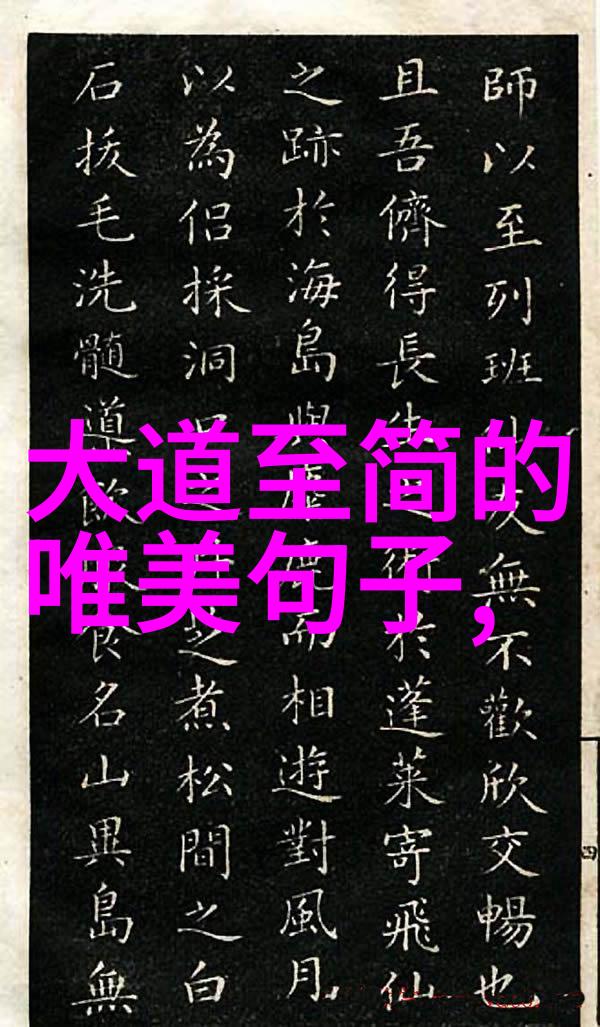 大道至简的
唯美句子,
師以至列班仙友無不歡欣交暢也
且吾儕得長生之術於蓬萊寄飛仙
之跡於海島與麋鹿而相遊對風月
以為侶採洞芝煮松間之白
石拔毛洗髓道飲食名山異島無
四